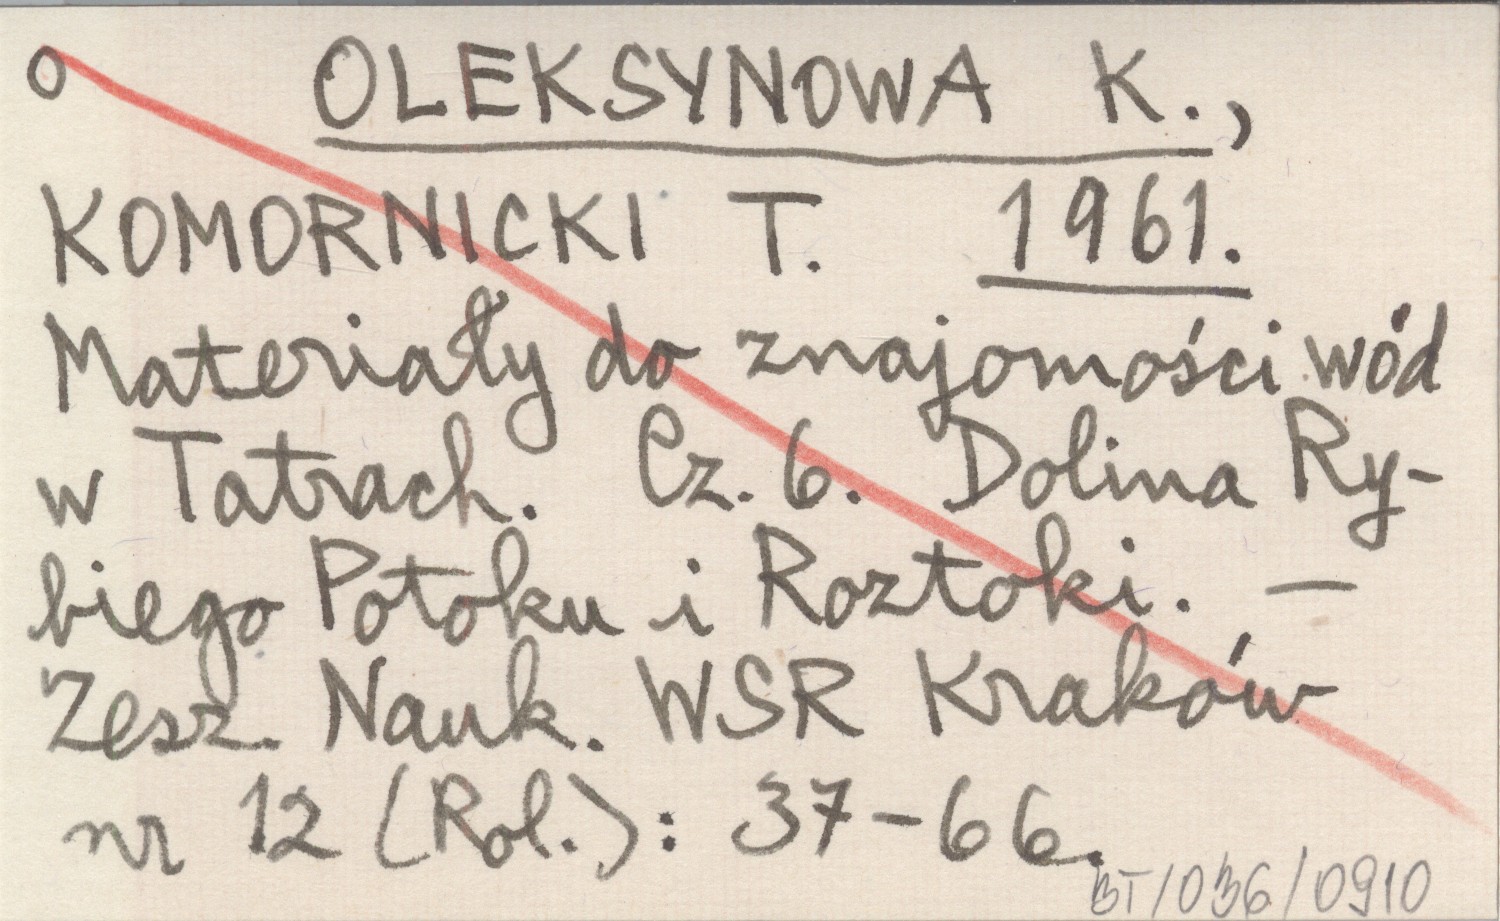 o OLEKSYNOWA K.,
KOMORNICKI T. 1961.
Materiały do znajomości wód
w Tatrach. Cz. 6. Dolina Ry-
biego Potoku i Roztoki. —
Zesz. Nauk. WSR Kraków
nr 12 (Rol.): 37-66.
BT/036/0910